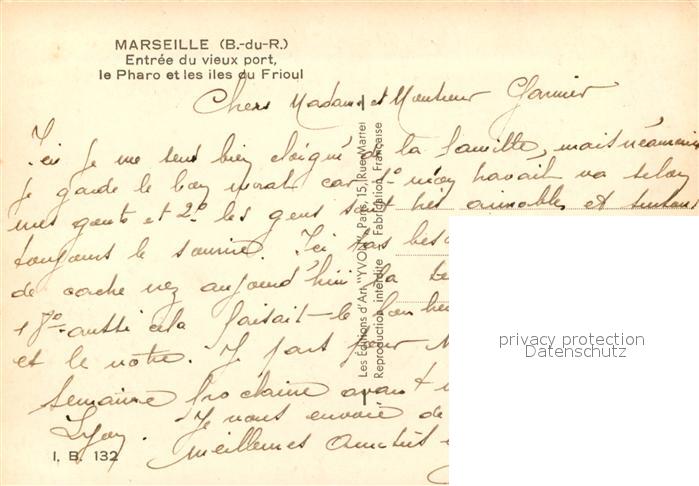 MARSEILLE (B.-du-R.)
Entrée du vieux port,
le Pharo et les iles du Frioul
Chers Madame et Monsieur Garnier
Ici je me sens bien éloigné de la famille, mais néanmoins
je garde le bon moral car 1º mon travail va selon
mes goûts et 2º les gens sont très aimables et surtout
toujours le sourire. Ici pas
de cache nez aujourd'hui la
+ 18º aussi cela faisait le bonheur
et le notre. Je pars pour
semaine prochaine avant
Lyon. Je vous envoie de
meilleures amitiés
Les Editions d'Art "YVON", Paris, 15, Rue Martel
Reproduction interdite - Fabrication Française
I. B. 132
privacy protection
Datenschutz